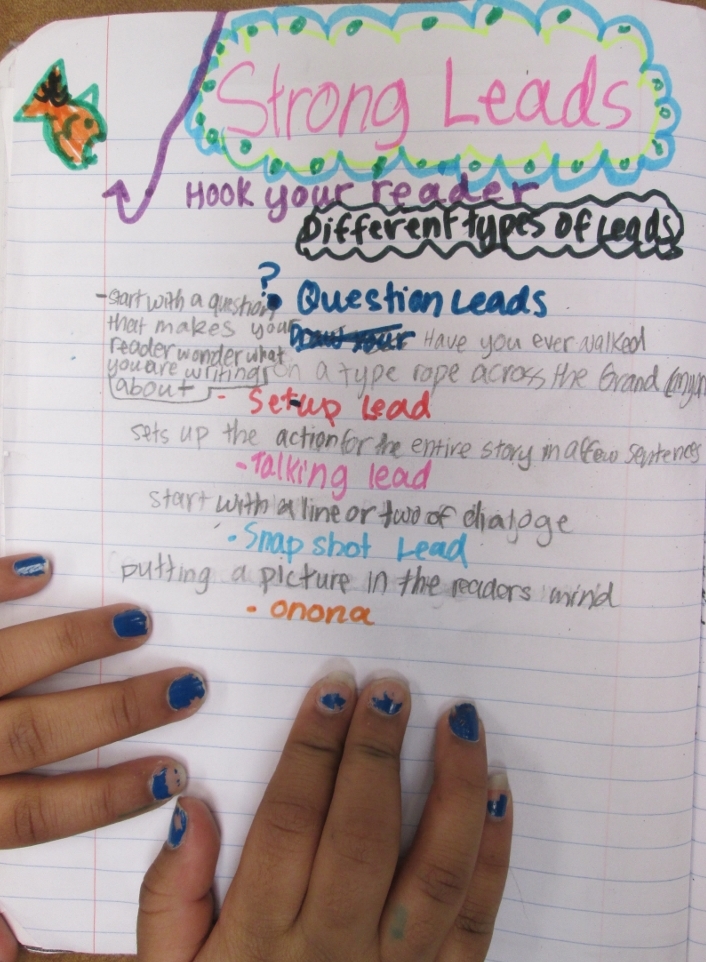 Strong Leads
Hook your reader
Different types of Leads
?
• Question Leads
-start with a question
that makes your
reader wonder what
you are writing
about
Have you ever walked
on a type rope across the Grand Canyon
- Set-up Lead
sets up the action for the entire story in a few sentences
-Talking lead
start with a line or two of dialoge
• Snap shot Lead
putting a picture in the readers mind
• onona